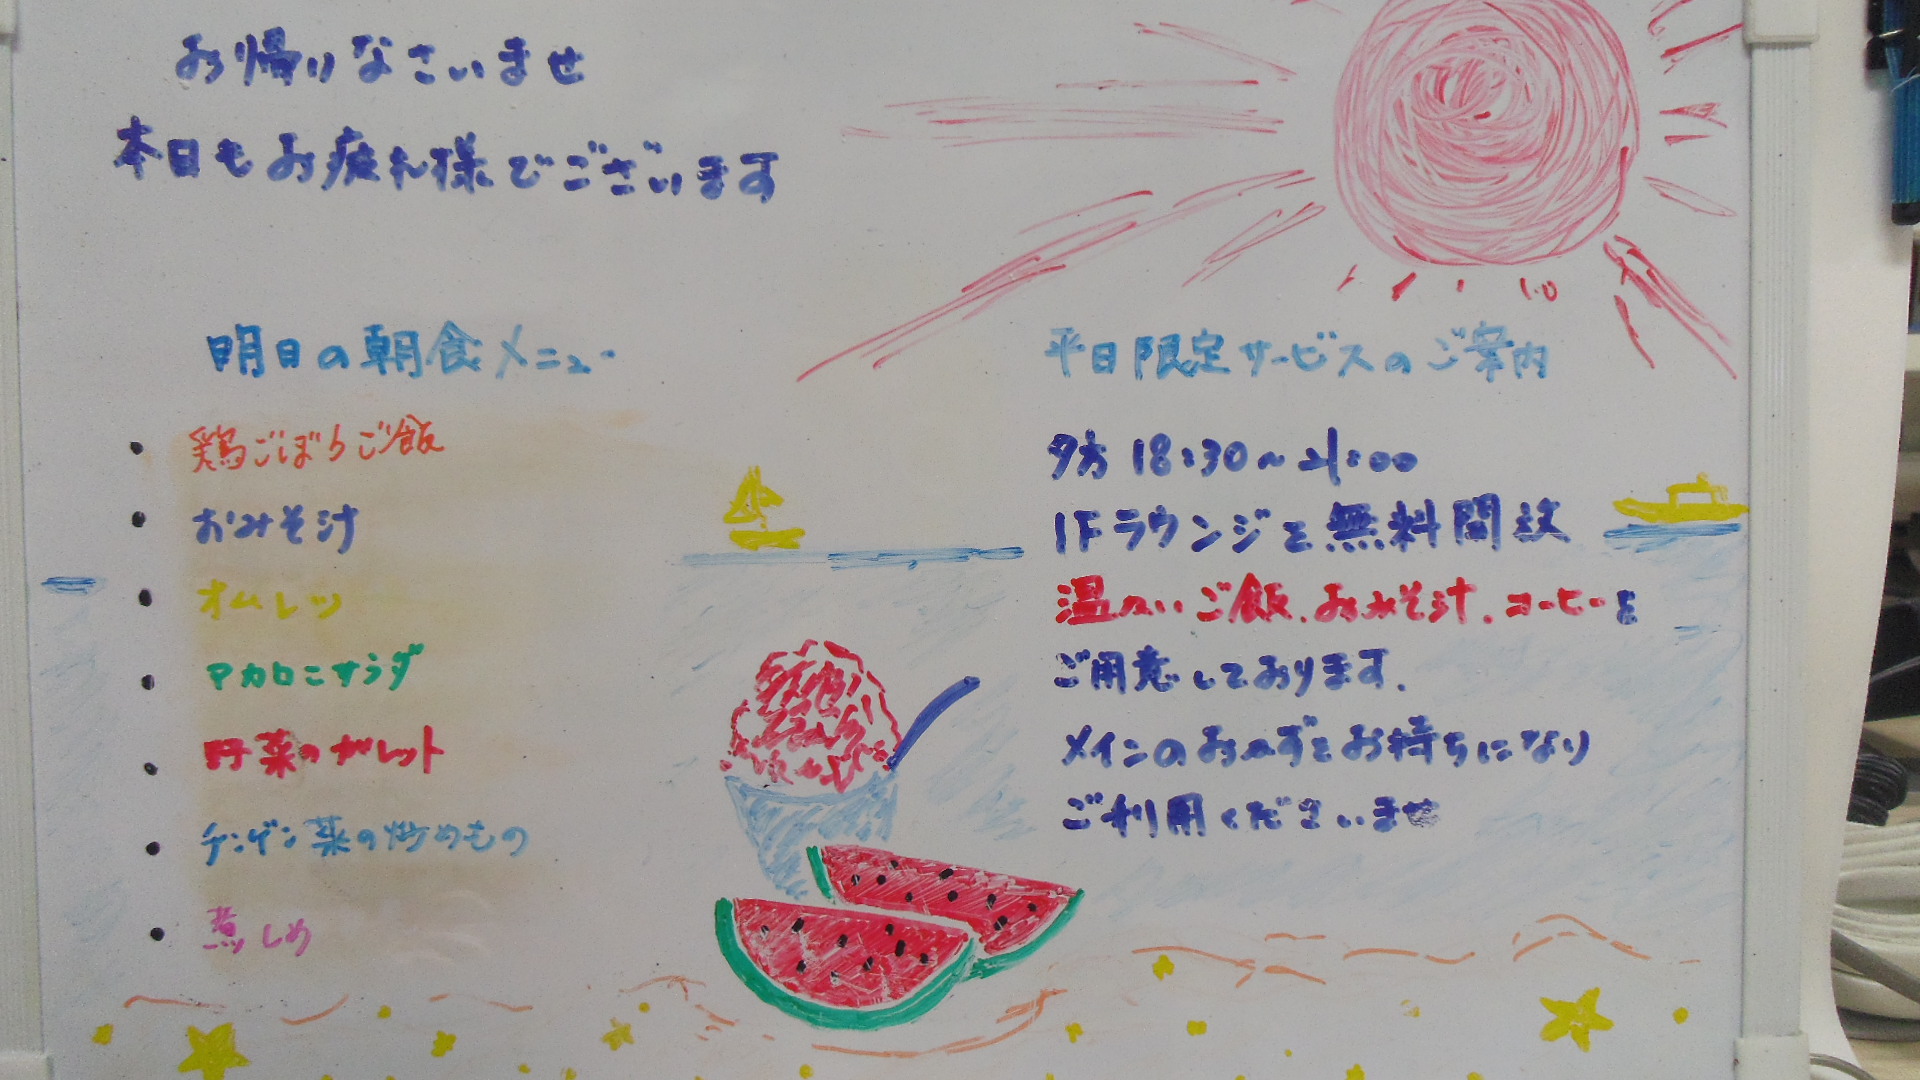 お帰りなさいませ
本日もお疲れ様でございます
明日の朝食メニュー
・鶏ごぼうご飯
・おみそ汁
・オムレツ
・マカロニサラダ
・野菜のガレット
・チンゲン菜の炒めもの
・煮しめ
平日限定サービスのご案内
夕方 18:30〜21:00
1Fラウンジを無料開放
温かいご飯、おみそ汁、コーヒーを
ご用意しております。
メインのおかずをお持ちになり
ご利用くださいませ